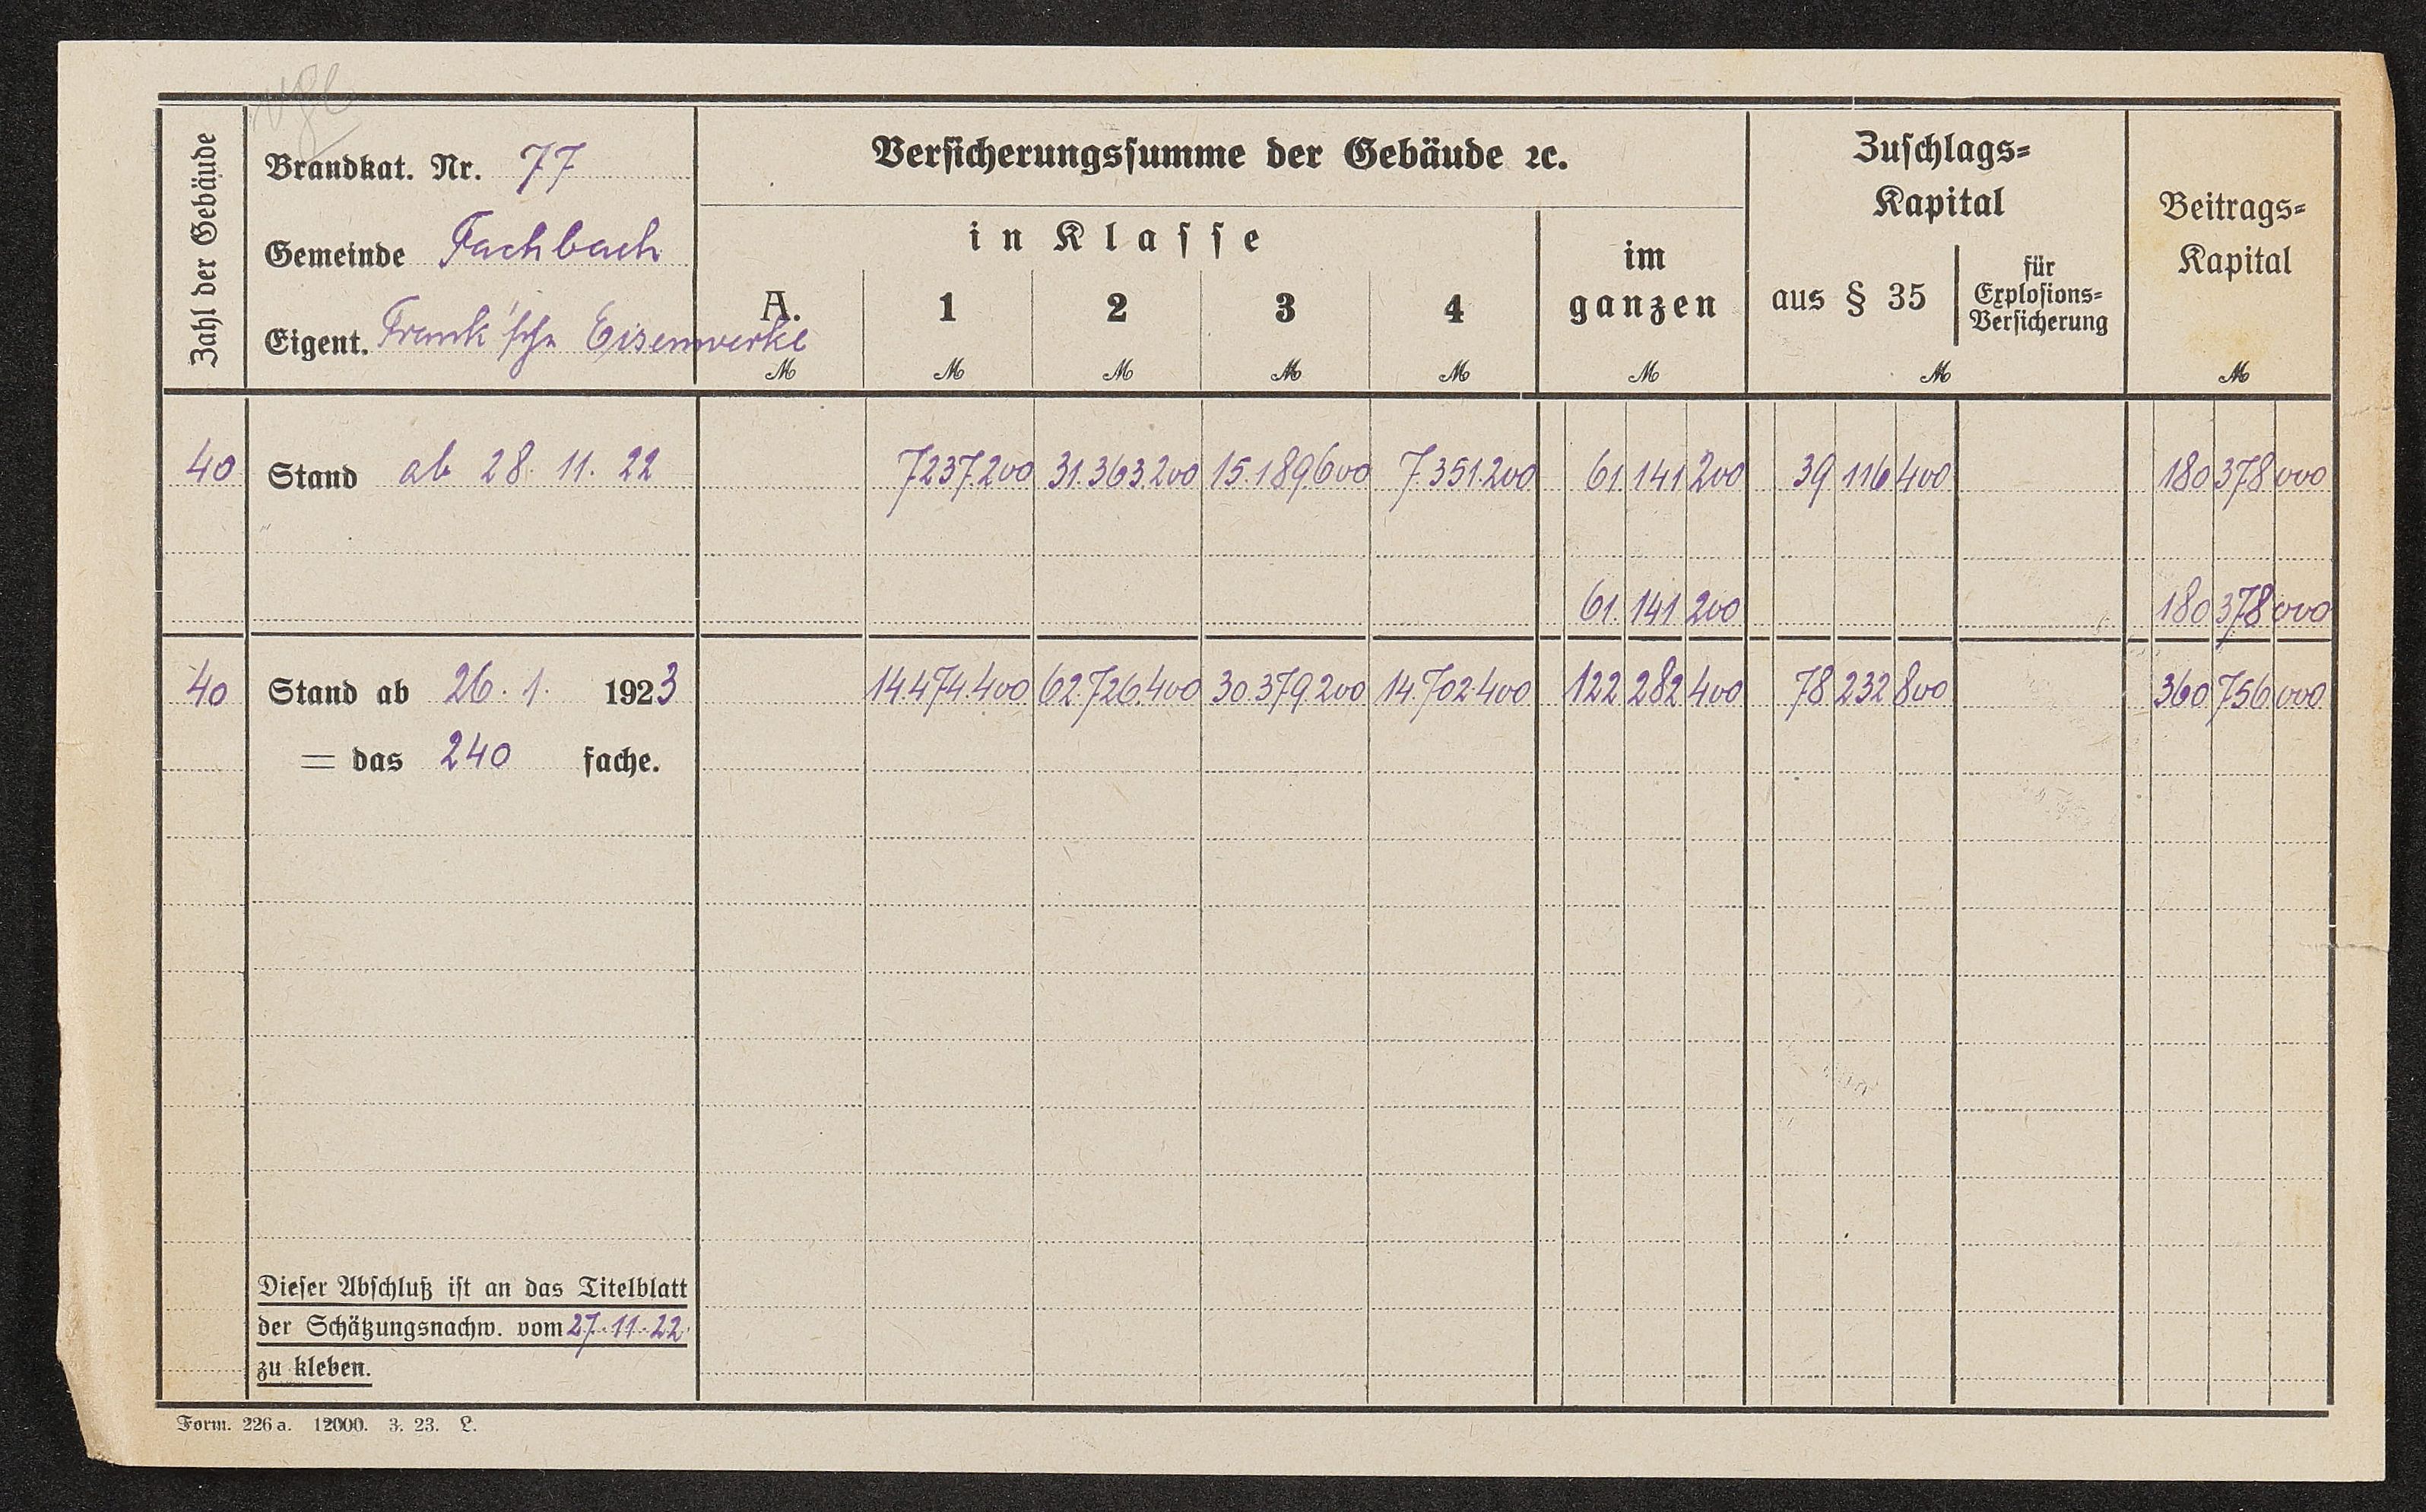 Zahl der Gebäude
Brandkat. Nr. 77
Gemeinde Fachbach
Eigent. Frank'sche Eisenwerke
Versicherungssumme der Gebäude ꝛc.
in Klasse
A. 1 2 3 4
im
ganzen
Zuschlags=
Kapital
aus § 35
für
Explosions=
Versicherung
Beitrags=
Kapital
ℳ ℳ ℳ ℳ ℳ ℳ ℳ ℳ
40 Stand ab 28. 11. 22 7237200 31.363.200 15.189600 7.351.200 61.141 200 39 116 400 180 378 000
61. 141 200 180 378 000
40 Stand ab 26. 1. 1923 14.474.400 62.726.400 30.379.200 14.702.400 122 282 400 78 232 800 360 756 000
= das 240 fache.
Dieser Abschluß ist an das Titelblatt
der Schätzungsnachw. vom 27.11.22.
zu kleben.
Form. 226 a. 12000. 3. 23. L.